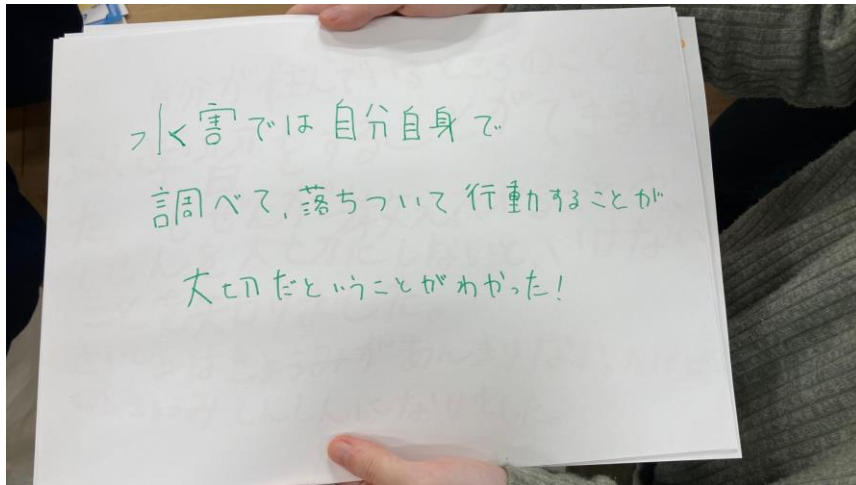 水害では自分自身で
調べて、落ちついて行動することが
大切だということがわかった!